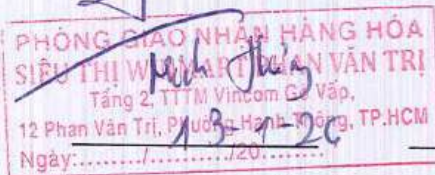 PHÒNG GIAO NHẬN HÀNG HÓA
SIÊU THỊ WINMART PHAN VĂN TRỊ
Minh Thùy
Tầng 2, TTTM Vincom Gò Vấp,
12 Phan Văn Trị, Phường Hạnh Thông, TP.HCM
13-1-26
Ngày:......../......../20........